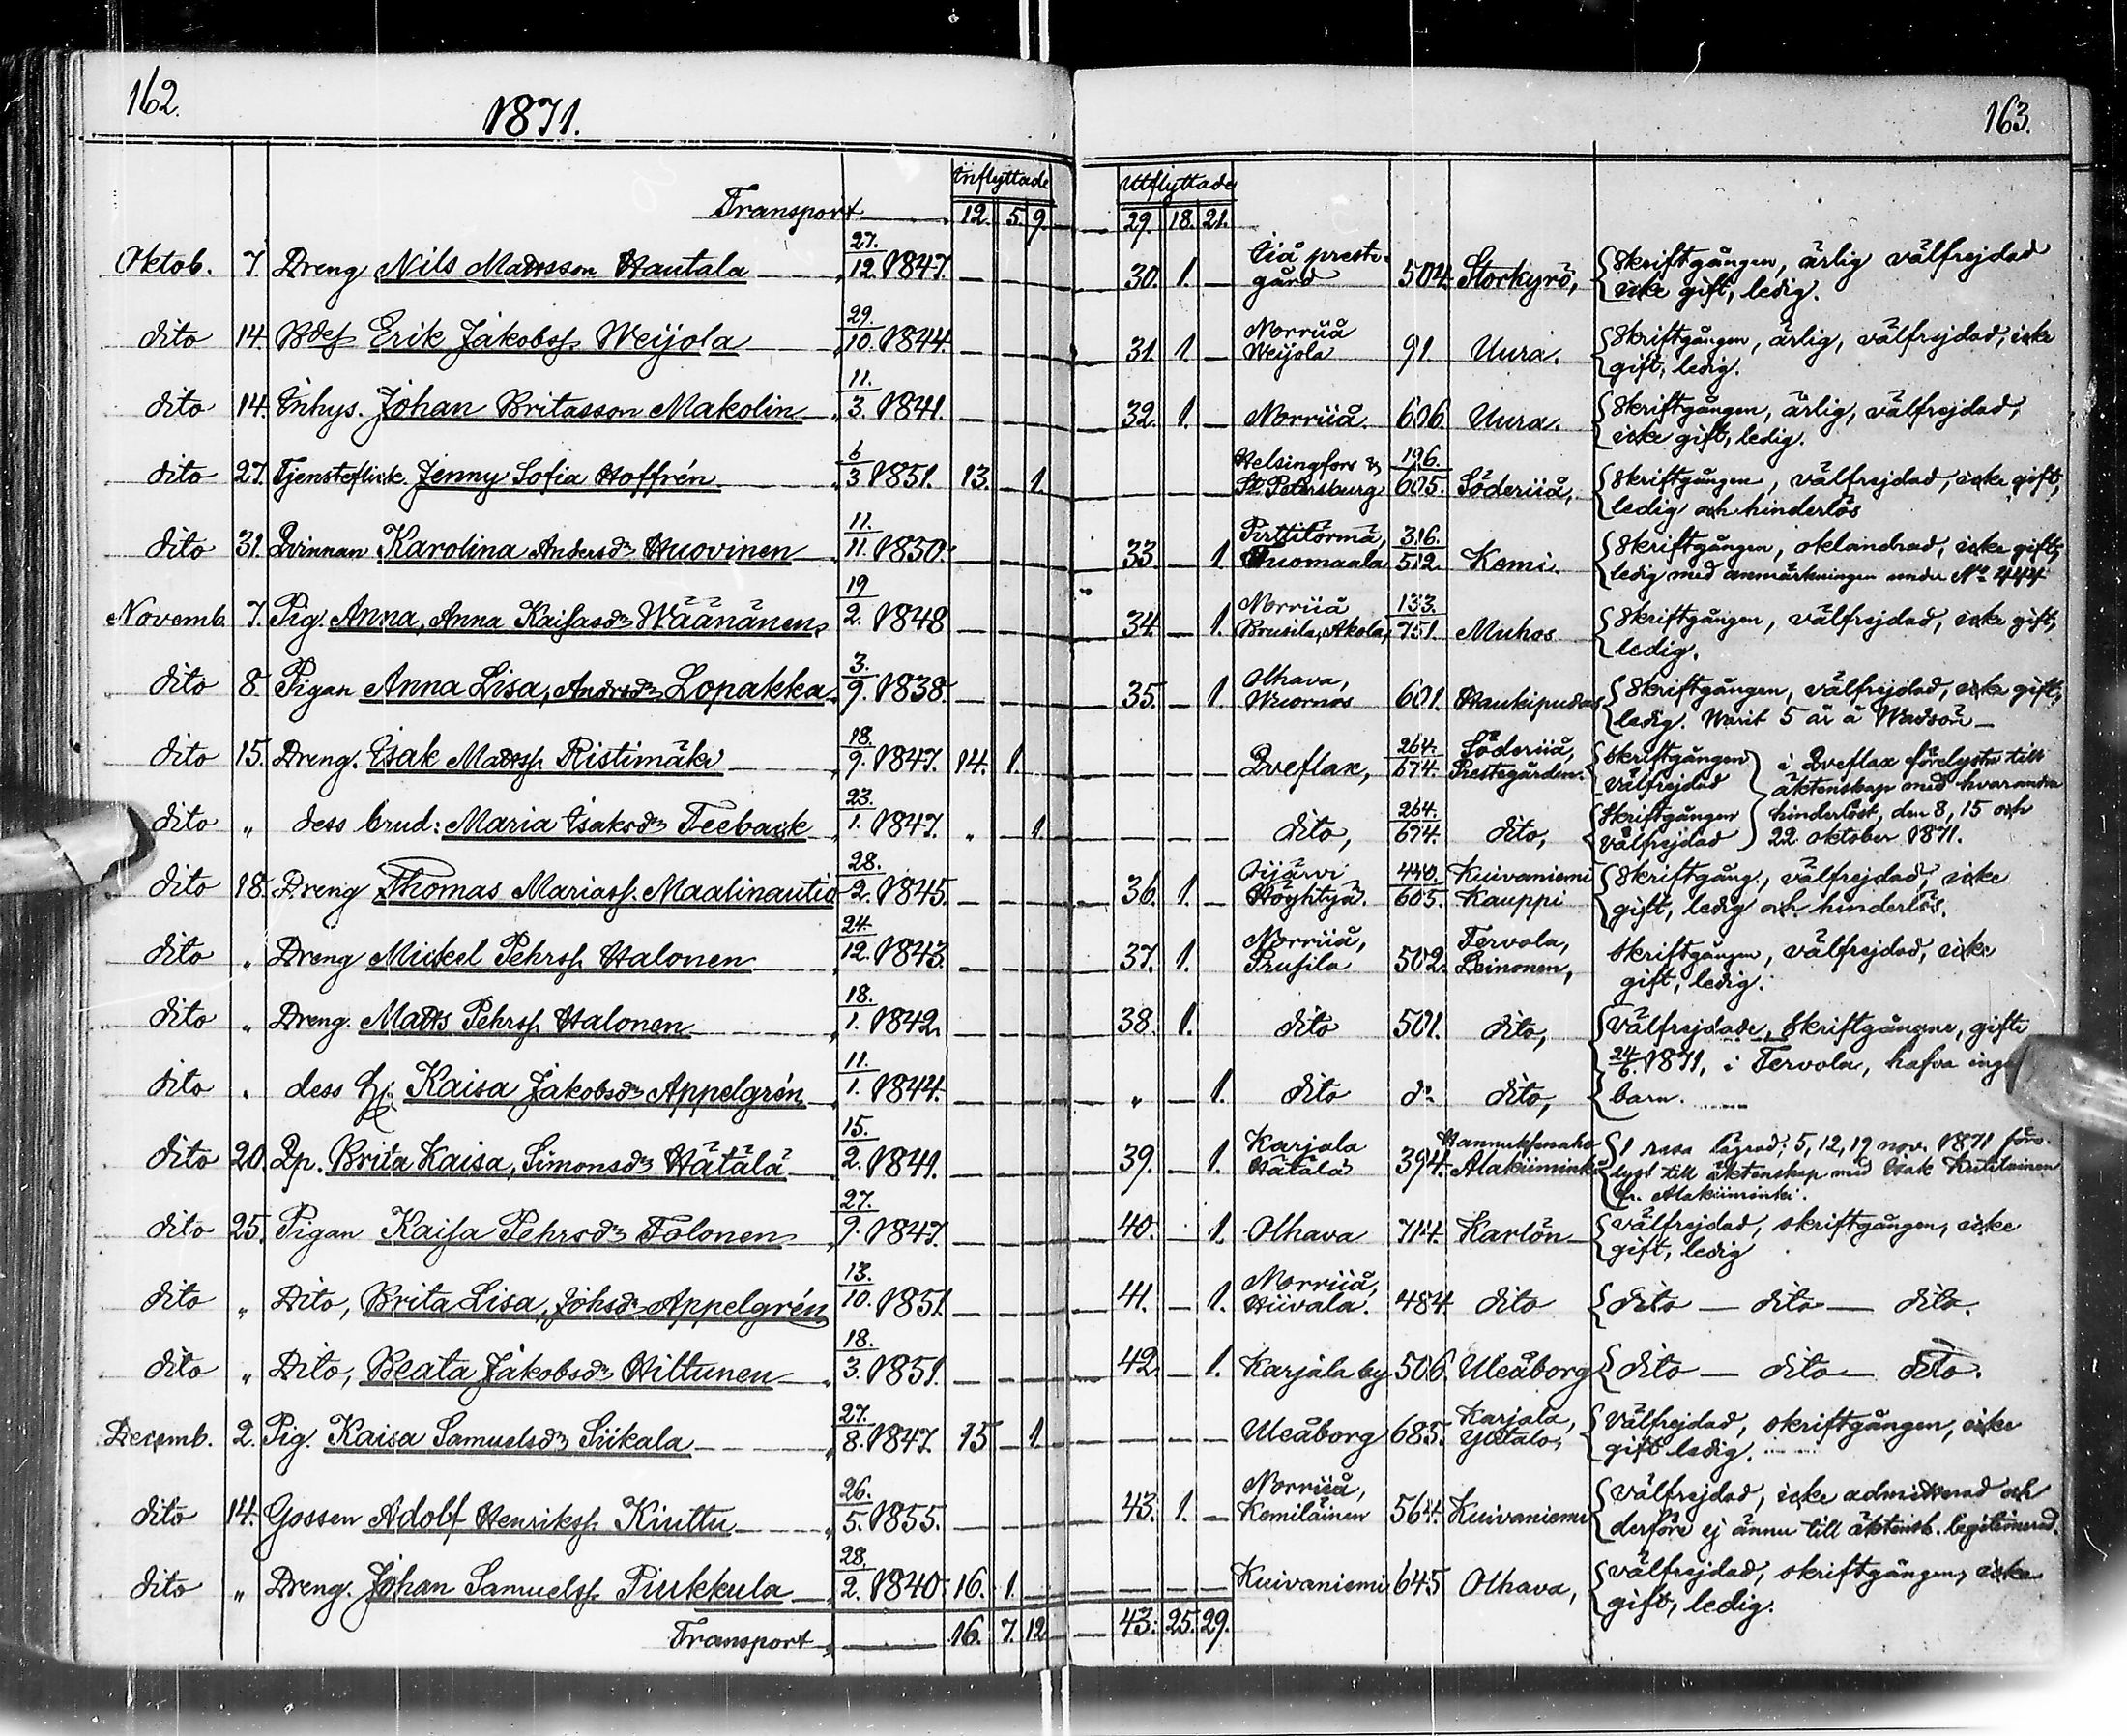 162.
1871.
163.
Inflyttade
Utflyttade
Transport 12. 5. 9. 29. 18. 21.
Oktob. 7. Dreng Nils Mattsson Hautala 27./12. 1847. 30. 1. Iiå prestegård 504. Storkyrö, Skriftgången, ärlig välfrejdad
icke gift, ledig.
dito 14. Bdes Erik Jakobss. Weijola 29./10. 1844. 31. 1. Norriiå Weijola 91. Uura. Skriftgången, ärlig, välfrejdad, icke
gift, ledig.
dito 14. Inhys. Johan Britasson Makolin 11./3. 1841. 32. 1. Norriiå. 606. Uura. Skriftgången, ärlig, välfrejdad,
icke gift, ledig.
dito 27. Tjensteflick. Jenny Sofia Hoffrén 6/3 1851. 13. 1. Helsingfors & St Petersburg 196./605. Söderiiå, Skriftgången, välfrejdad, icke gift,
ledig och hinderlös
dito 31. Qvinnan Karolina Andersdr Huovinen 11./11. 1850. 33. 1 Pirttitörmä, Tuomaala 316./512. Kemi. Skriftgången, oklandrad, icke gift,
ledig med anmärkningen under No 444
Novemb. 7. Pig. Anna, Anna Kaisasdr Wäänänen, 19/2. 1848 34. 1. Norriiå Brusila, Akola, 133./751. Muhos Skriftgången, välfrejdad, icke gift,
ledig.
dito 8. Pigan Anna Lisa, Andrsdr Lopakka 3./9. 1838. 35. 1. Olhava, Wuornos 601. Haukipudas Skriftgången, välfrejdad, icke gift,
ledig. Warit 5 år å Wadsön
dito 15. Dreng. Isak Mattss. Ristimäki 18./9. 1847. 14. 1. Qveflax, 264./674. Söderiiå, Prestegården. Skriftgången välfrejdad i Qveflax förelyste till
äktenskap med hvarandra
dito „ dess brud: Maria Isaksdr Teeback 23./1. 1847. „ 1. dito, 264./674. dito, Skriftgången välfrejdad hinderlöst, den 8, 15 och
22 oktober 1871.
dito 18. Dreng Thomas Mariass. Maalinautio 28./2. 1845. 36. 1. Oijärvi Höyhtyä. 440./605. Kuivaniemi Kauppi Skriftgång., välfrejdad, icke
gift, ledig och hinderlös.
dito „ Dreng Mickel Pehrss. Halonen 24./12. 1843. 37. 1. Norriiå, Prusila 502. Tervola, Leinonen, Skriftgången, välfrejdad, icke
gift, ledig.
dito „ Dreng. Matts Pehrss. Halonen 18./1. 1842. 38. 1. dito 501. dito, Välfrejdade, skriftgångne, gifte
24/6. 1871, i Tervola, hafva inga
dito „ dess h. Kaisa Jakobsdr Appelgrén 11./1. 1844. „ 1. dito do dito, barn.
dito 20. Qp. Brita Kaisa, Simonsdr Hätälä 15./2. 1841. 39. 1. Karjala Hätälä 394. Alakiiminki 1 resa lägrad; 5, 12, 19 nov. 1871 före-
lyst till äktenskap med Isak
fr. Alakiiminki.
dito 25. Pigan Kaisa Pehrsdr Tolonen 27./9. 1847. 40. 1. Olhava 714. Karlön Välfrejdad, skriftgången, icke
gift, ledig
dito „ Dito, Brita Lisa, Johsdr Appelgrén 13./10. 1851. 41. 1. Norriiå, Hiivala. 484. dito dito — dito — dito.
dito „ Dito, Beata Jakobsdr Hiltunen 18./3. 1851. 42. 1. Karjala by 506. Uleåborg dito — dito — dito.
Decemb. 2. Pig. Kaisa Samuelsdr Siikala 27./8. 1847. 15 1. Uleåborg 685. Karjala, Ylitalo, Välfrejdad, skriftgången, icke
gift ledig.
dito 14. Gossen Adolf Henrikss. Kiuttu 26./5. 1855. 43. 1. Norriiå, Kemiläinen 564. Kuivaniemi Välfrejdad, icke admitterad och
derföre ej ännu till äktensk. legitimerad.
dito „ Dreng. Johan Samuelss. Piukkula 28./2. 1840. 16. 1. Kuivaniemi 645 Olhava, Välfrejdad, skriftgången, icke
gift, ledig.
Transport 16. 7. 12 43. 25. 29.